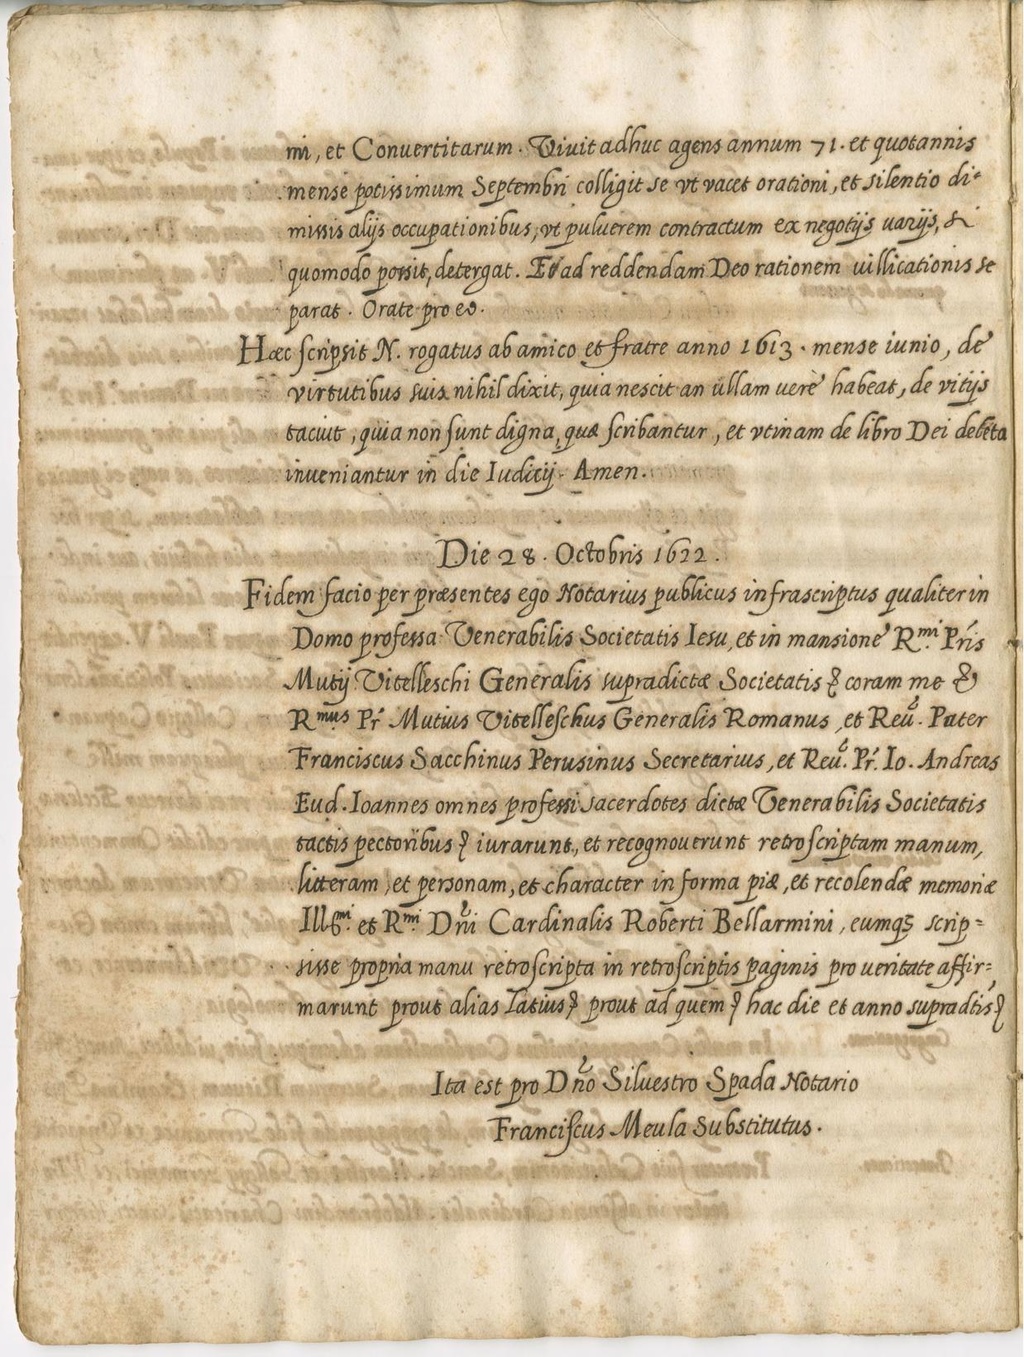 ni, et Conuertitarum. Viuit adhuc agens annum 71. et quotannis
mense potissimum Septembri colligit se vt vacet orationi, et silentio di-
missis alijs occupationibus, vt puluerem contractum ex negotijs uarijs, &
quomodo possit, detergat. Et ad reddendam Deo rationem uillicationis se
parat. Orate pro eo.
Hæc scripsit N. rogatus ab amico et fratre anno 1613. mense iunio, de
virtutibus suis nihil dixit, quia nescit an ullam uerè habeat, de vitijs
tacuit, quia non sunt digna, quæ scribantur, et vtinam de libro Dei deleta
inueniantur in die Iudicij. Amen.
Die 28. Octobris 1622.
Fidem facio per præsentes ego Notarius publicus infrascriptus qualiter in
Domo professa Venerabilis Societatis Iesu, et in mansione R.mi Pris
Mutij Vitelleschi Generalis supradictæ Societatis & coram me &
R.mus Pr Mutius Vitelleschus Generalis Romanus, et Reu. Pater
Franciscus Sacchinus Perusinus Secretarius, et Reu. Pr. Io. Andreas
Eud. Ioannes omnes professi sacerdotes dictæ Venerabilis Societatis
tactis pectoribus & iurarunt, et recognouerunt retroscriptam manum,
litteram, et personam, et character in forma piæ, et recolendæ memoriæ
Ill.mi et R.mi Dni Cardinalis Roberti Bellarmini, eumq; scrip-
sisse propria manu retroscripta in retroscriptis paginis pro ueritate affir-
marunt prout alias latius & prout ad quem & hac die et anno supradtis &
Ita est pro Dno Siluestro Spada Notario
Franciscus Meula Substitutus.